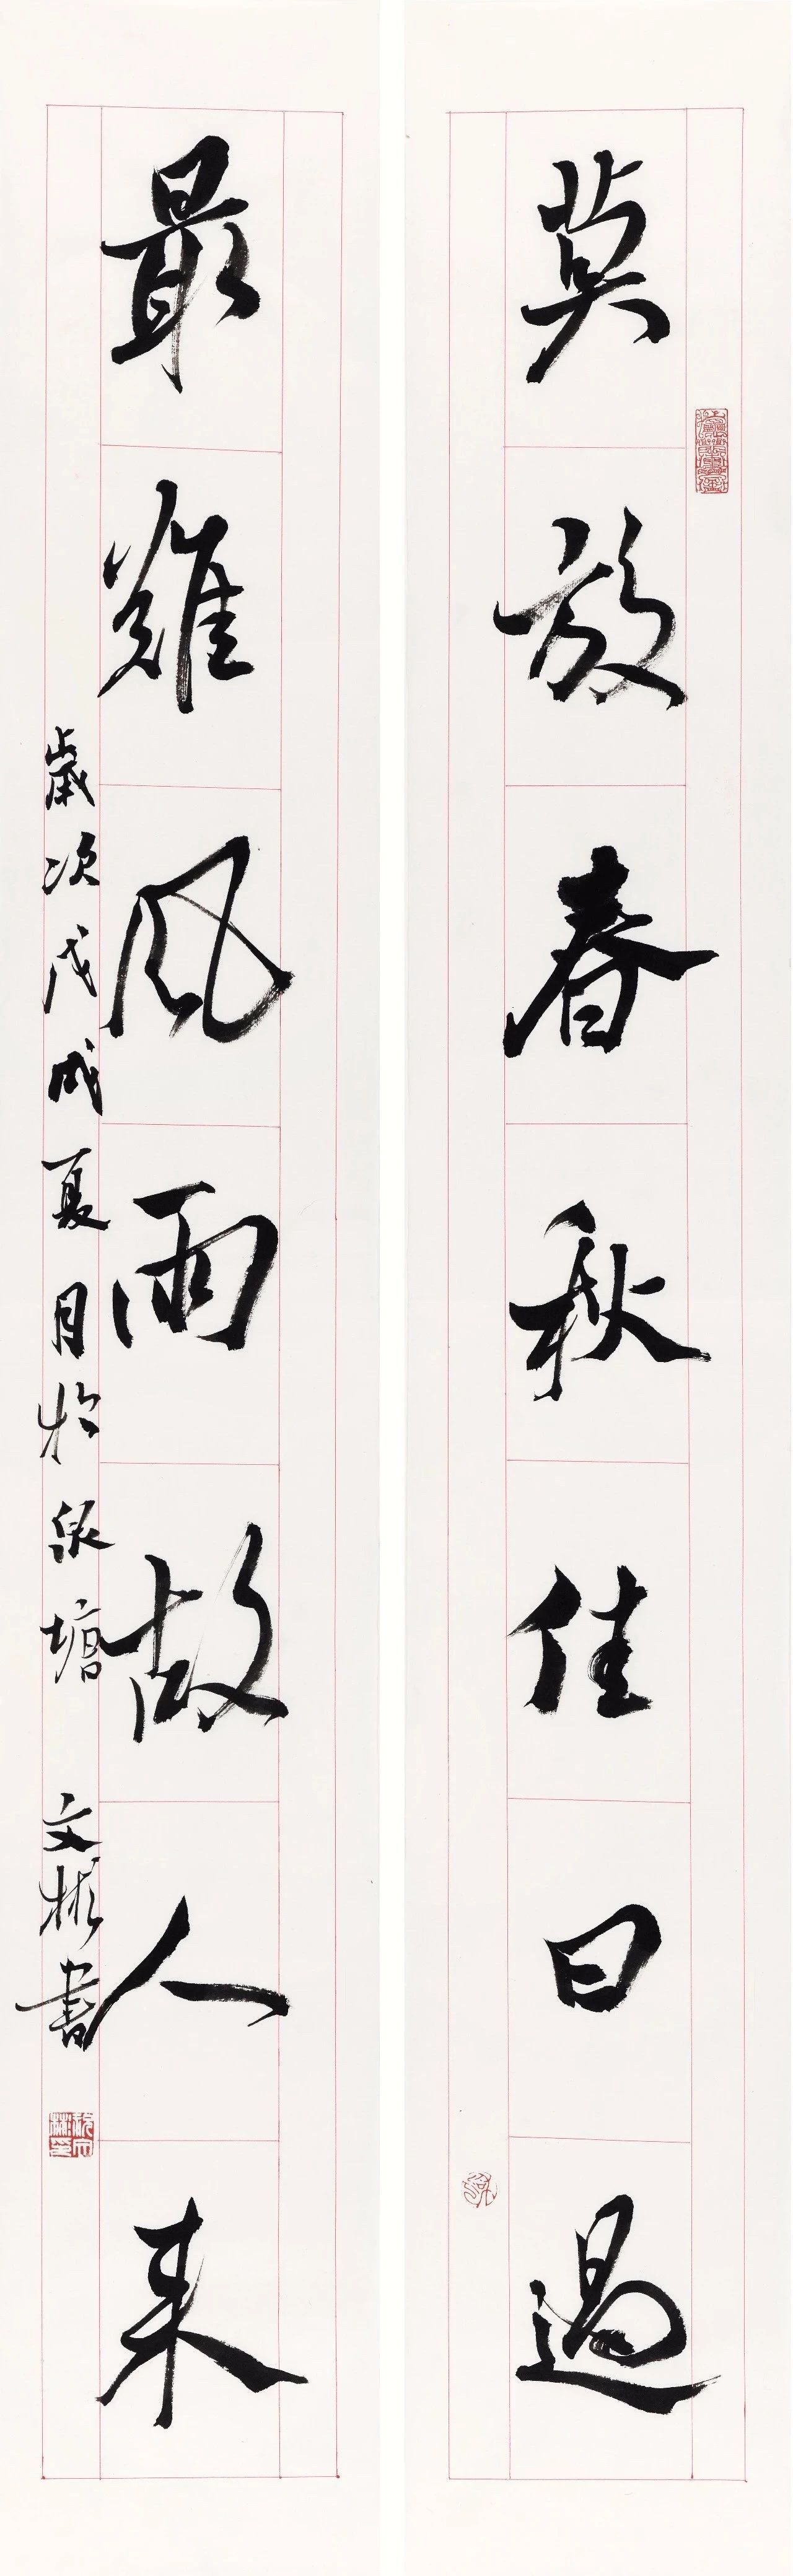 莫放春秋佳日過
最難風雨故人来
歲次戊戌夏月於泉塘 文彬書